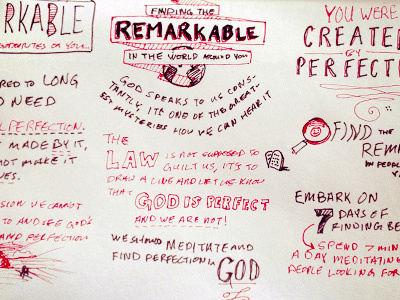 RKABLE
RED TO LONG
D NEED
L PERFECTION.
MADE BY IT,
NOT MAKE IT
VES.
SION WE CANNOT
TO AND SEE GOD'S
AND PERFECTION
FINDING THE
REMARKABLE
IN THE WORLD AROUND YOU
GOD SPEAKS TO US CONS-
TANTLY. IT'S ONE OF THE GREAT-
EST MYSTERIES HOW WE CAN HEAR IT
THE
LAW IS NOT SUPPOSED TO
GUILT US, IT'S TO
DRAW A LINE AND LET US KNOW
THAT GOD IS PERFECT
AND WE ARE NOT!
WE SHOULD MEDITATE AND
FIND PERFECTION IN
GOD
YOU WERE
CREATED
BY
PERFECTIO
FIND THE
REM
IN PEOPLE
Y
EMBARK ON
7 DAYS OF
FINDING BE
SPEND 7 MIN
A DAY MEDITATING
PEOPLE LOOKING FOR